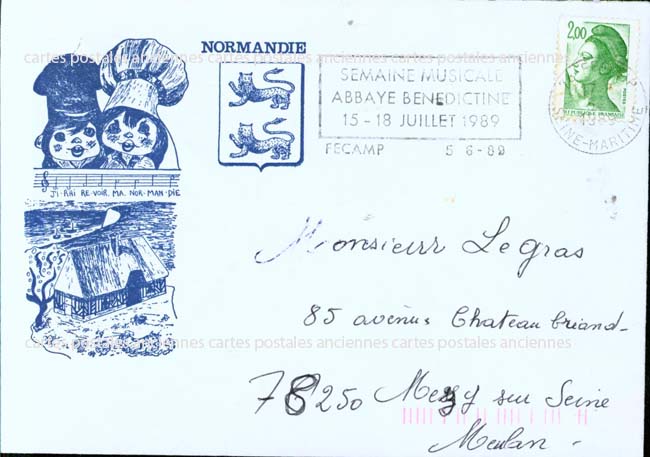 cartes postales anciennes cartes postales anciennes cartes postales anciennes
NORMANDIE
SEMAINE MUSICALE
ABBAYE BENEDICTINE
15-18 JUILLET 1989
FECAMP 5 6-89
2,00
POSTES
REPUBLIQUE FRANÇAISE
SEINE-MARITIME
J'I-RAI RE-VOIR MA NOR-MAN-DIE
Monsieur Legras
85 avenue Chateaubriand-
cartes postales anciennes cartes postales anciennes cartes postales anciennes
78250 Mezy sur Seine
Meulan -